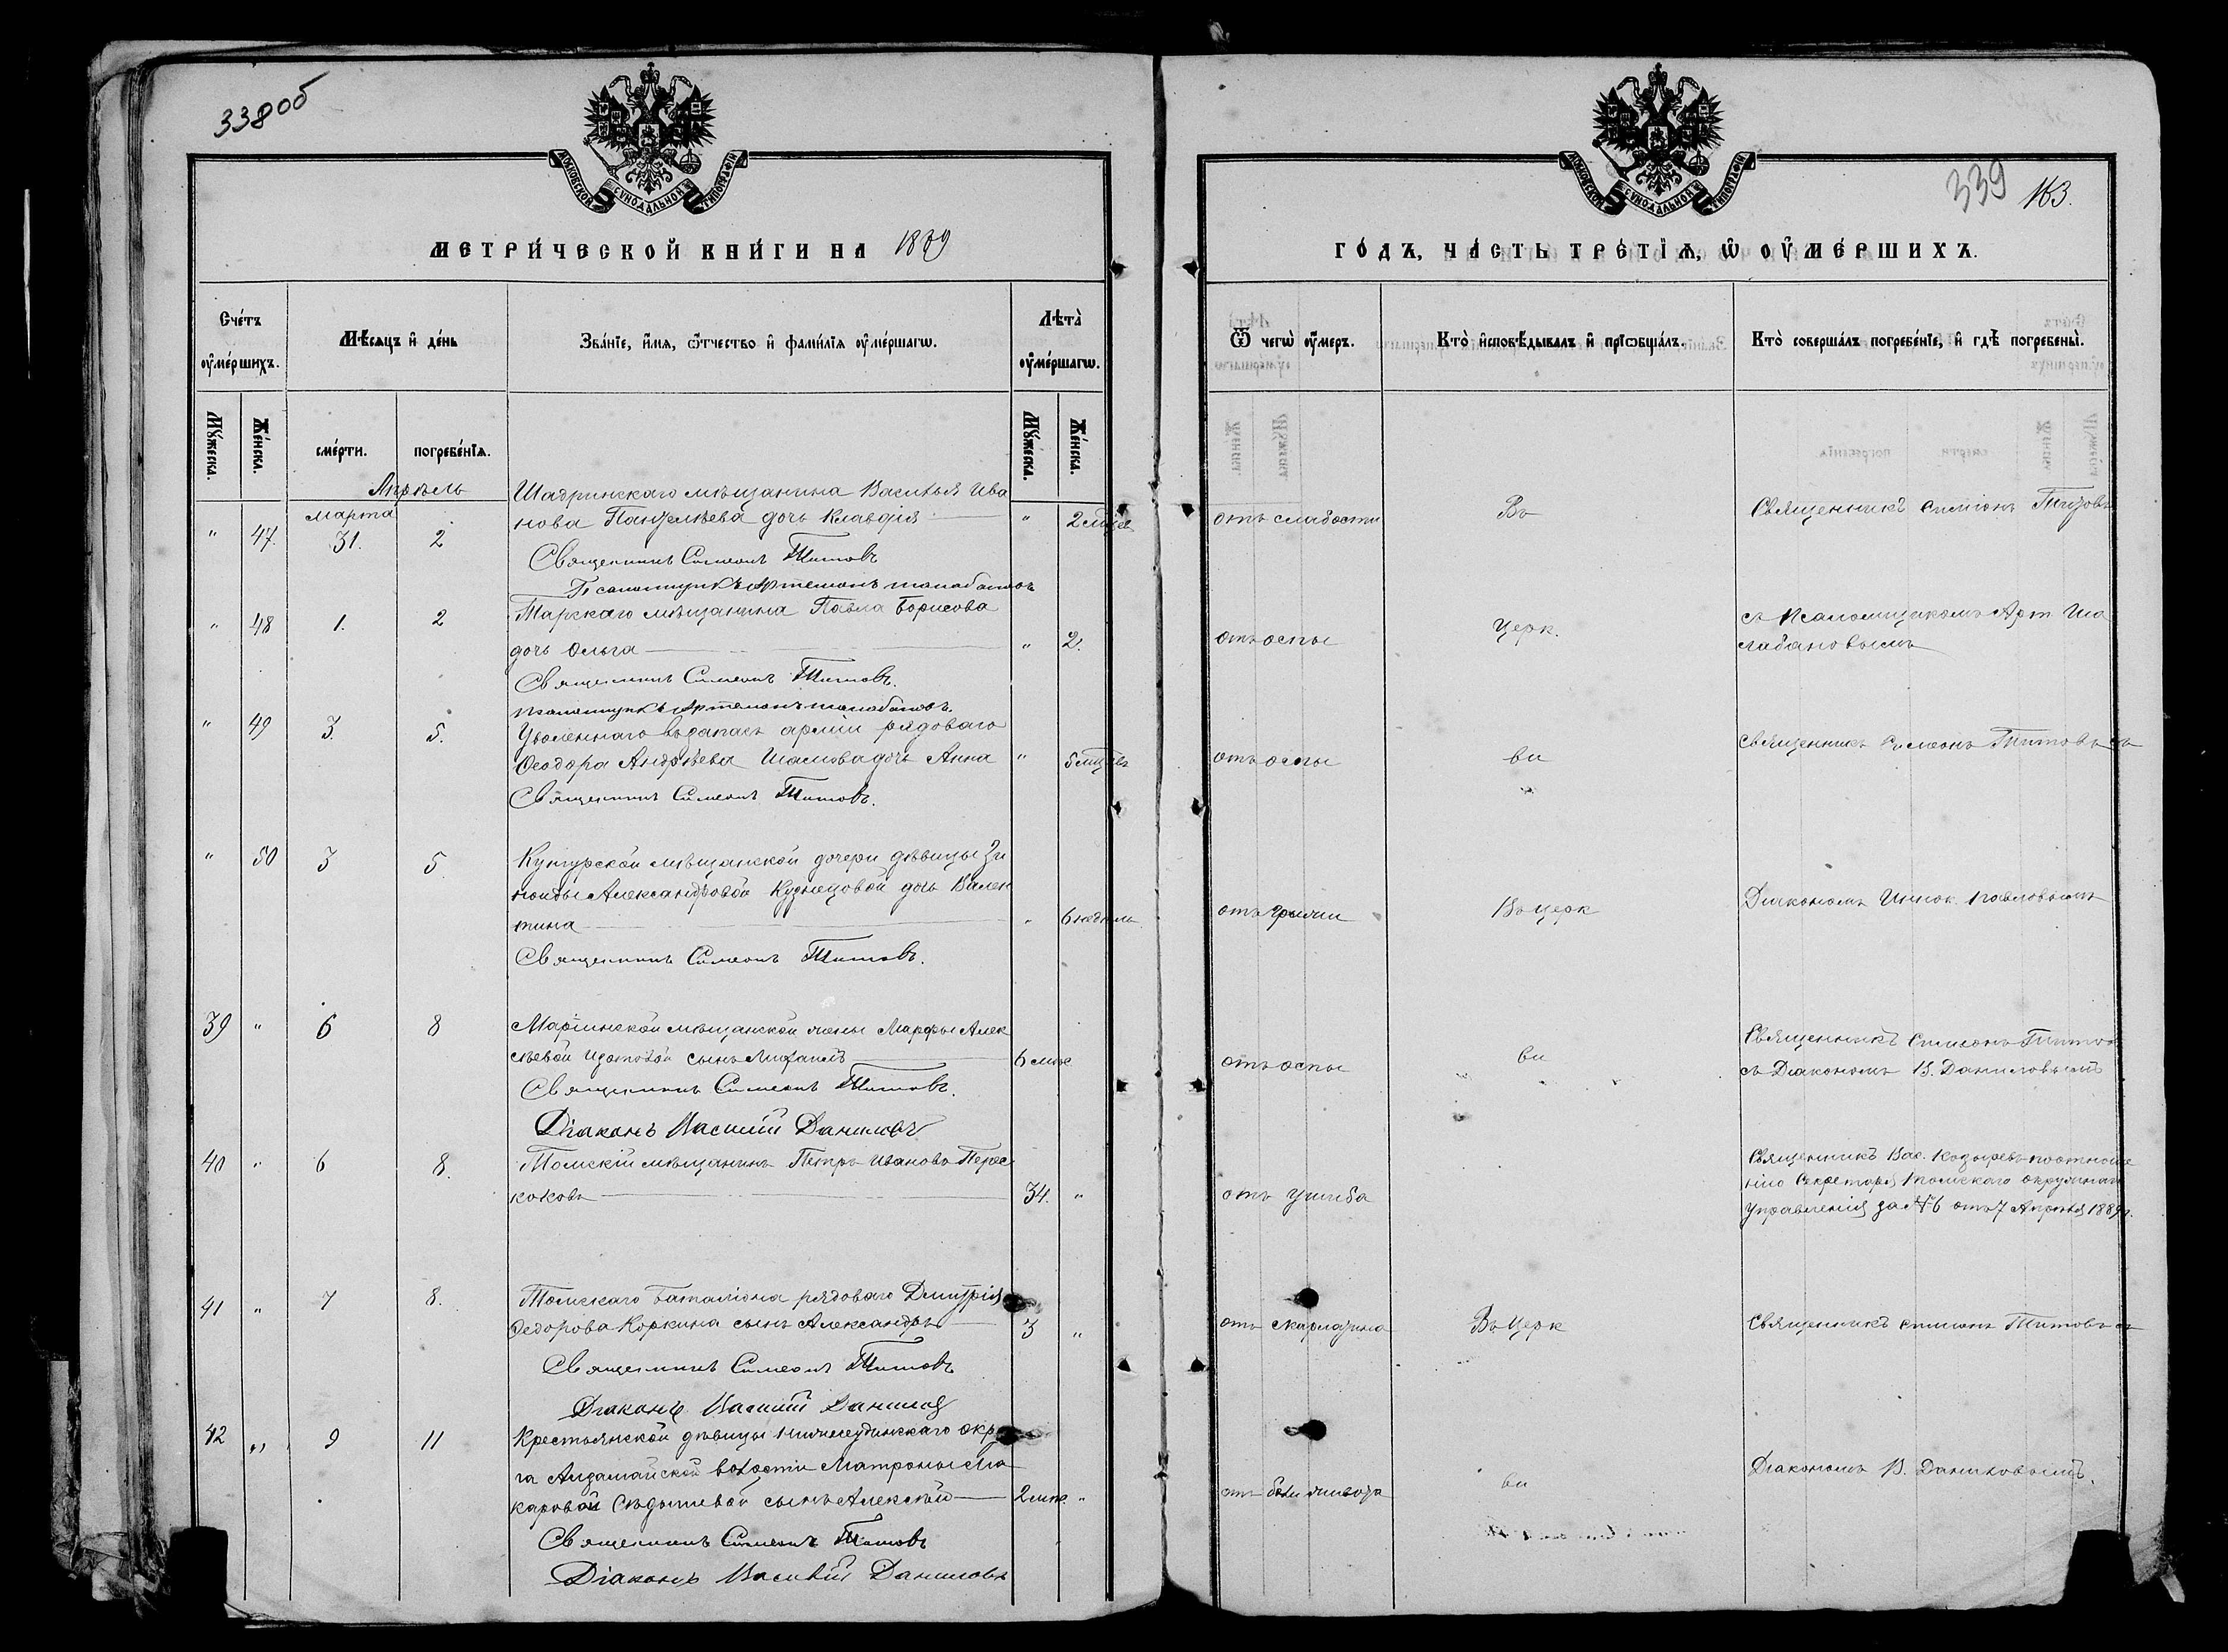 338 об
МОСКОВСКОЙ СУНОДАЛЬНОЙ ТИПОГРАФIИ
МЕТРИ́ЧЕСКОЙ КНИ́ГИ НА 1889
Сче́тъ ᲂу҆ме́ршихъ.
Мѣ́сяцъ и҆ де́нь
Зва́нїе, и҆́мя, ѻ҆́тчество и҆ фами́лїя ᲂу҆ме́ршагѡ.
Лѣта̀ ᲂу҆ме́ршагѡ.
Мꙋ́жеска.
Же́нска.
сме́рти.
погребе́нїя.
Мꙋ́жеска.
Же́нска.
Апрѣль
Шадринскаго мѣщанина Василья Ива
марта
" 47. 31. 2 нова Пантелѣева дочь Клавдія " 2 мѣсяц
Священникъ Симеонъ Титовъ
Псаломщикъ Артемонъ Шалобановъ
" 48 1. 2 Тарскаго мѣщанина Павла Борисова
дочь Ольга " 2.
Священникъ Симеонъ Титовъ.
Псаломщикъ Артемонъ Шалобановъ.
" 49 3. 5. Уволеннаго въ запасъ арміи рядоваго
Ѳеодора Андрѣева Шамова дочь Анна "
Священникъ Симеонъ Титовъ.
" 50 3 5. Кунгурской мѣщанской дочери дѣвицы Зи
ноиды Александровой Кузнецовой дочь Вален
тина " 6 недѣль
Священникъ Симеонъ Титовъ.
39 " 6 8 Маріинской мѣщанской жены Марфы Алек
сѣевой Изотовой сынъ Михаилъ 6 мѣс
Священникъ Симеонъ Титовъ.
Діаконъ Василій Даниловъ
40 " 6 8. Томскій мѣщанинъ Петръ Ивановъ Перес
коковъ 34. "
41 " 7 8. Томскаго баталіона рядоваго Дмитрія
Ѳедорова Коркина сынъ Александръ 3 "
Священникъ Симеонъ Титовъ
Діаконъ Василій Даниловъ
42 " 9 11 Крестьянской дѣвицы Нижнеудинскаго окру
га Алзамайской волости Матроны Ма
каровой сынъ Алексѣй 2 мѣс. "
Священникъ Симеонъ Титовъ
Діаконъ Василій Даниловъ
339 163.
МОСКОВСКОЙ СУНОДАЛЬНОЙ ТИПОГРАФIИ
ГО́ДЪ, ЧА́СТЬ ТРЕ́ТЇѦ, Ѡ҆ ОУ҆МЕ́РШИХЪ.
Ѿ чегѡ̀ ᲂу҆́меръ.
Кто̀ и҆сповѣ́дывалъ и҆ прїѡбща́лъ.
Кто̀ соверша́лъ погребе́нїе, и҆ гдѣ̀ погребены̀.
отъ слабости Въ Священникъ Симеонъ Титовъ
отъ оспы Церк. съ Псаломщикомъ Арт. Ша
лабановымъ
отъ оспы Священникъ Симеонъ Титовъ съ
отъ Въ церк Діакономъ Иннок. Павловымъ
отъ оспы Священникъ Симеонъ Титовъ
съ Діакономъ В. Даниловымъ
отъ ушиба Священникъ Вас. Козыревъ по отноше
нію Секретаря Томскаго окружнаго
управленія за № 46 отъ 7 Апрѣля 1889 г.
отъ скарлатина Въ Церк Священникъ Симеонъ Титовъ съ
отъ боли живота Діакономъ В. Даниловымъ.